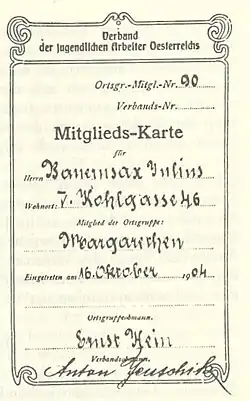 Verband
der jugendlichen Arbeiter Oesterreichs
Ortsgr.-Mitgl.-Nr. 90
Verbands-Nr.
Mitglieds-Karte
für
Herrn Julius
Wohnort: V. Kohlgasse 46
Mitglied der Ortsgruppe:
Margarethen
Eingetreten am 16. Oktober 1904
Ortsgruppenobmann.
Ernst Hein
Verbandsobmann.
Anton Jenschik